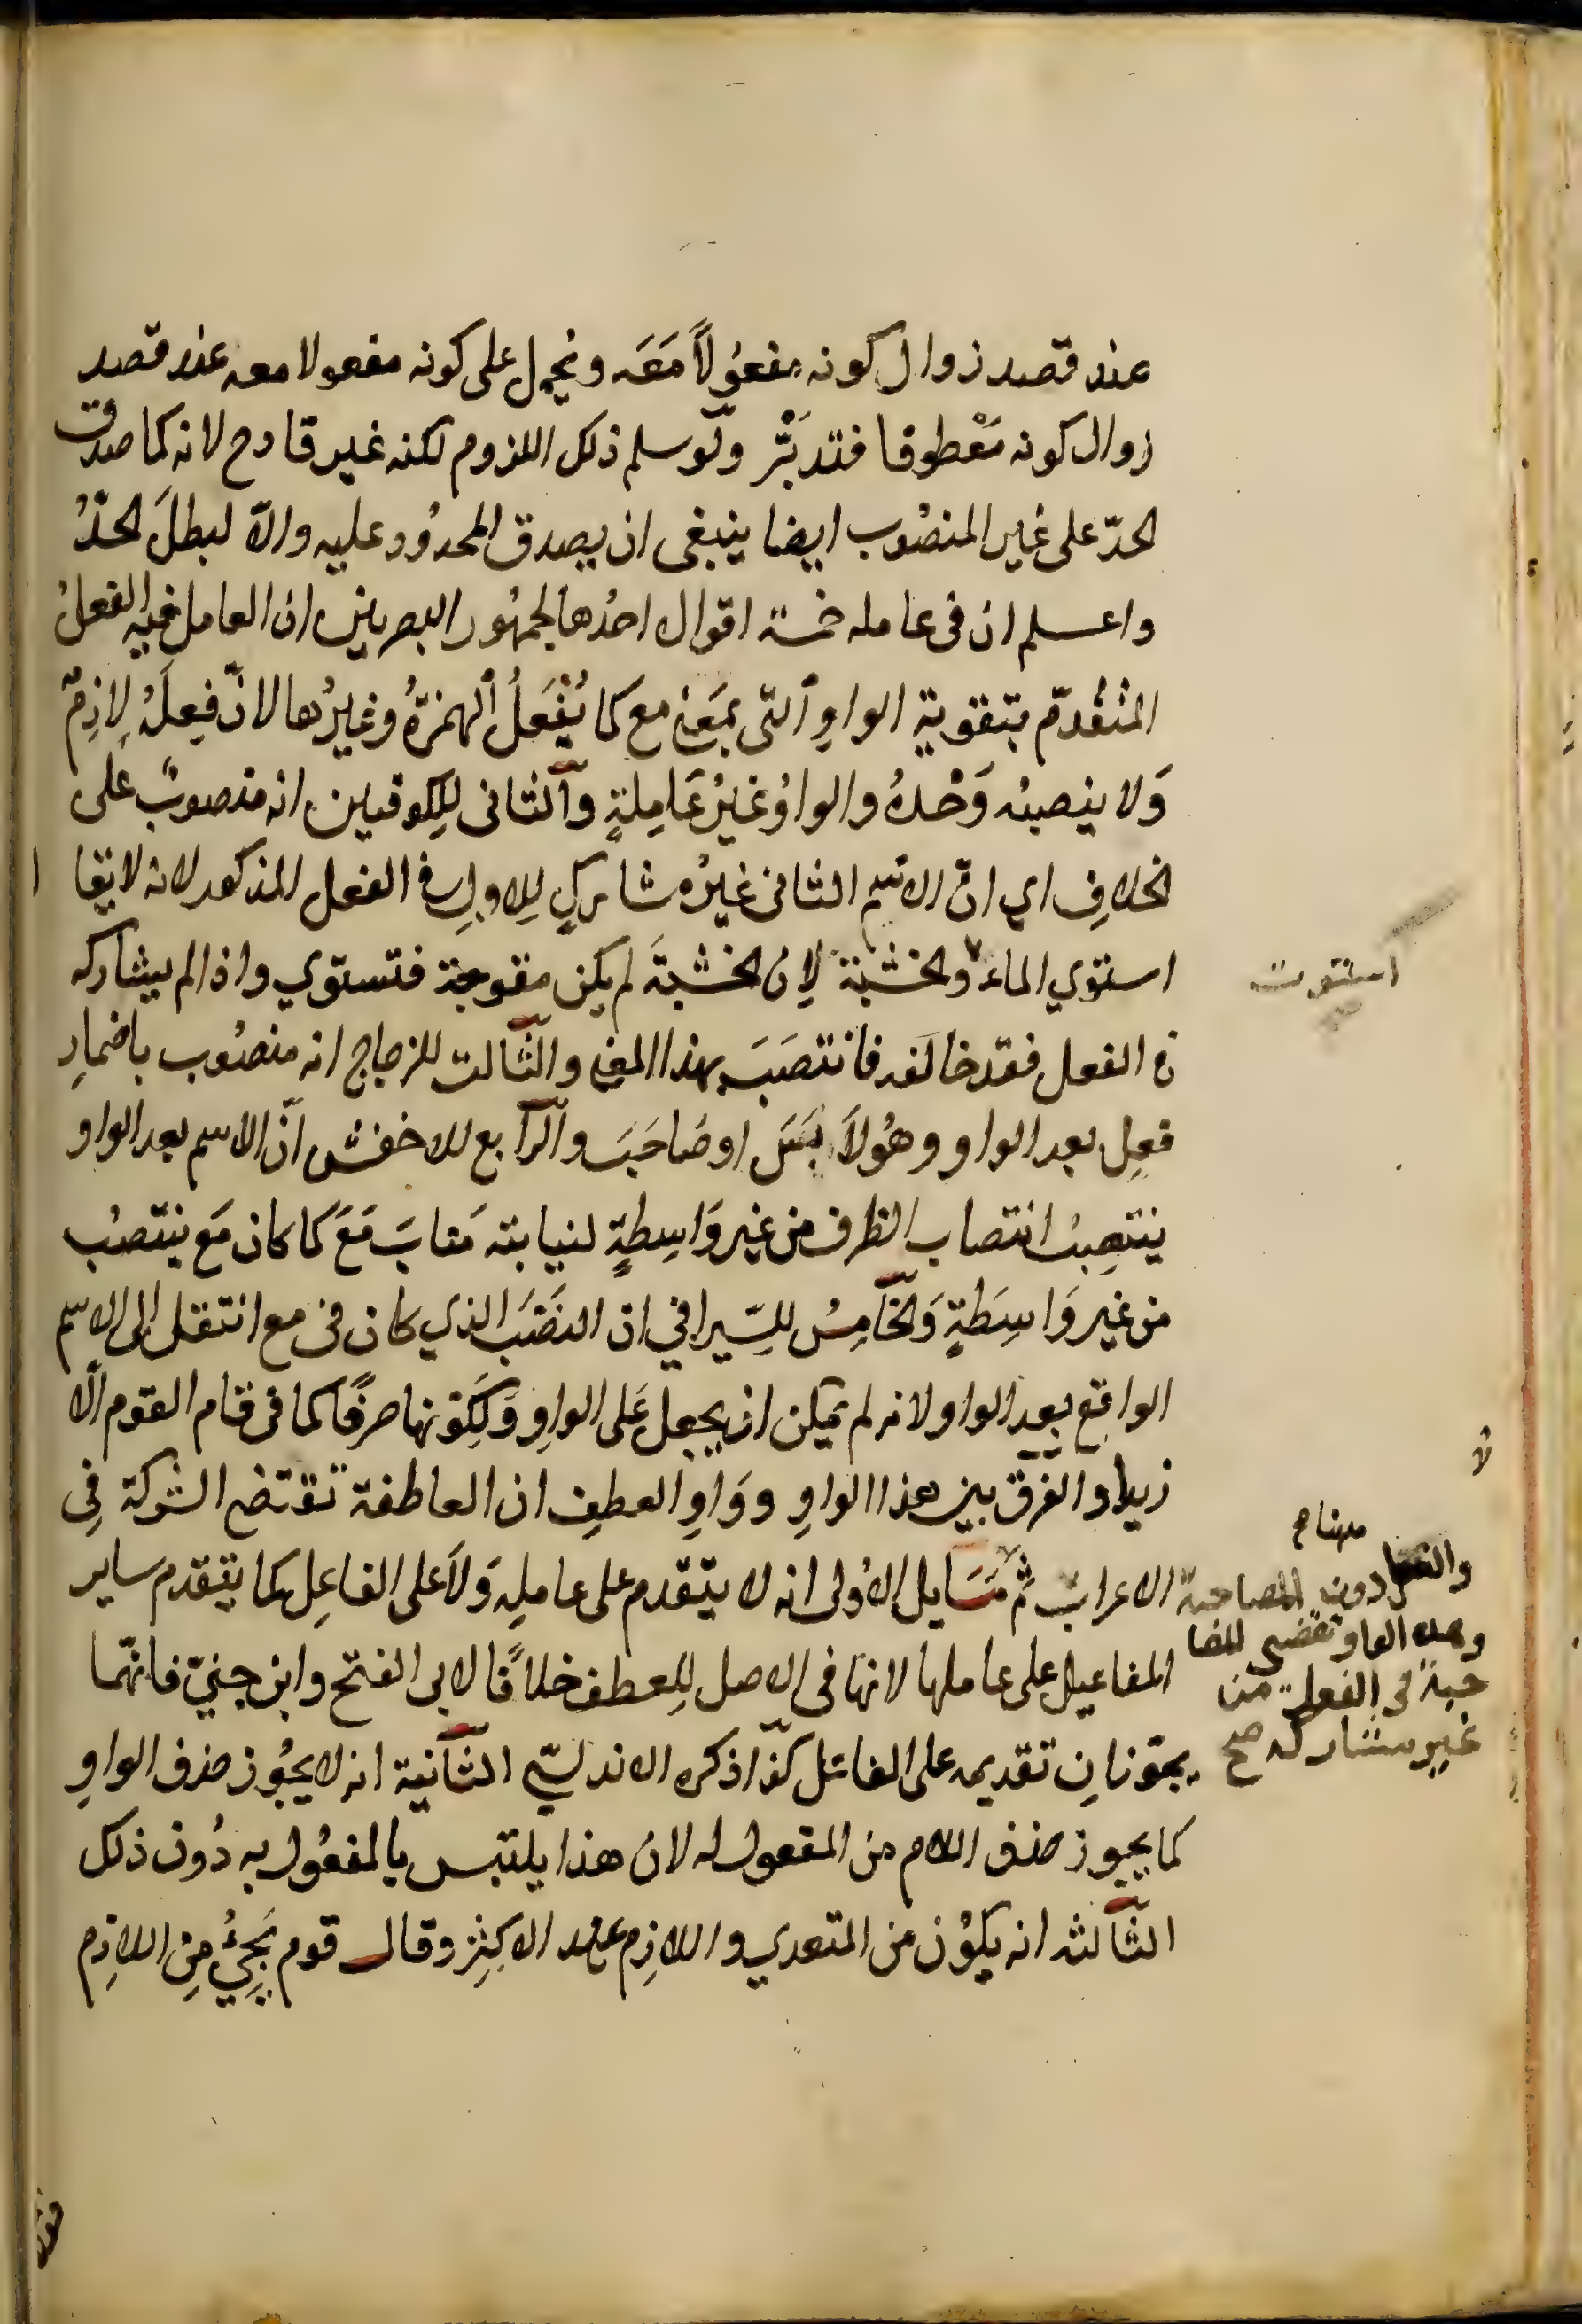 عند قصد زوال كونه مفعُولاً مَعَه ونُحمِل على كونه مفعولا معه عند قصد
زوال كونه مَعْطوفا فتدبَّر ولَو سلم ذلك اللزوم لكنه غير قادح لانه كما صدق
الحدّ على غير المنصُوب ايضا ينبغى ان يصدق المحدُود عليه والّا لبطلَ الحدُّ
واعلم ان فى عامله خمسة اقوال احدُها لجمهُور البصريين ان العامل فيه الفعلُ
المتقدّم بتقوية الواوِ الّتى بمَعنى مع كما يُفْعَلُ الهمزةُ وغيرُها لانّ فِعلَهُ لازِمٌ
وَلا ينصبه وَحْدهُ والواوُ غيرُ عَامِلةٍ والثانى لِلكوفيين انه منصوبٌ عَلى
الخلافِ اي انّ الاسم الثانى غيرُ مشاركٍ لِلاولِ فى الفعل المذكور لانه لا يقال
استوي الماء والخشبة لِان الخشبةَ لم يكن معوجة فتستوي واذا لم يشاركه
فى الفعل فقد خالفه فانتصَبَ بهذا المعنى والثّالث للزجاج انه منصُوب باضمارِ
فعلٍ بعد الواو وهُو لاَبَسَ او صَاحَبَ والرّابع للاخفش انّ الاسم بعد الواو
ينتصِبُ انتصاب الظرف من غير وَاسِطةٍ لنيابته مَنابَ مَعَ كما كان مَع ينتصبُ
من غير وَاسِطَةٍ وَالخَامِسُ للسِّيرافي ان النَصْبَ الذي كان فى مع انتقل الى الاسم
الواقع بعد الواو لانه لم يمكن ان يجعل عَلى الواوِ وَلِكَونها حرفًا كما فى قام القوم الّا
زيدا والفرق بين هذا الواوِ ووَاوِ العطفِ ان العاطفة تقتضى الشركة فِى
الاعراب ثم مَسَايل الاُولى انه لا يتقدم على عاملِهِ وَلا على الفاعِل كما يتقدم ساير
المفاعيل على عاملها لانها فى الاصل لِلعطف خلافًا لابى الفتح وابن جنيّ فانهما
يجوّزانِ تقديمه على الفاعل كذا ذكره الاندلسّي الثّانية انه لا يجُوز حذف الواوِ
كما يجوز حذف اللام من المفعول له لان هذا يلتبس بالمفعُول به دُون ذلك
الثّالثه انه يكوُن من المتعدي واللازِم عند الاكثرِ وقال قوم يَجِئُ مِن اللازِم
استوت
والفعل دون المصاحبة
وهذه الواو تقتضى المصا
حبة فى الفعل من
غير مشاركه صح